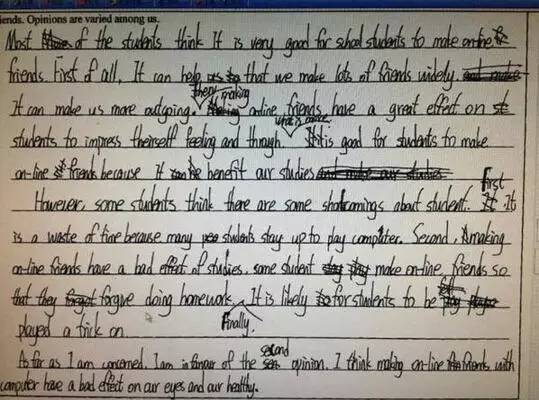 iends. Opinions are varied among us.
Most of the students think It is very good for school students to make on-line
friends. First of all, It can help us that we make lots of friends widely.
It can make us more outgoing. Then, making on-line friends have a great effect on
students to impress theirself feeling and through. what's more, It is good for students to make
on-line friends because It can benefit our studies
However, some students think there are some shortcomings about student. First It
is a waste of time because many students stay up to play computer. Second, making
on-line friends have a bad effect of studies, some student make on-line friends so
that they forgive doing homework. Finally, It is likely for students to be
played a trick on.
As far as I am concerned, I am in favour of the second opinion. I think making on-line friends with
computer have a bad effect on our eyes and our healthy.